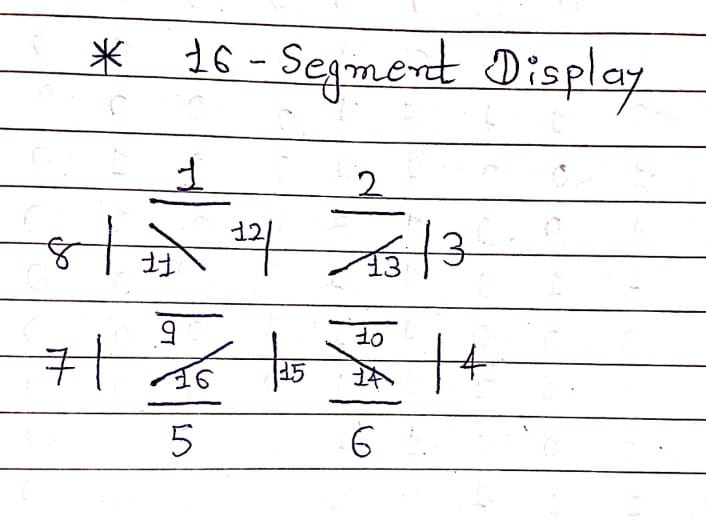 * 16 - Segment Display
1 2
8 11 12 13 3
9 10
7 16 15 14 4
5 6